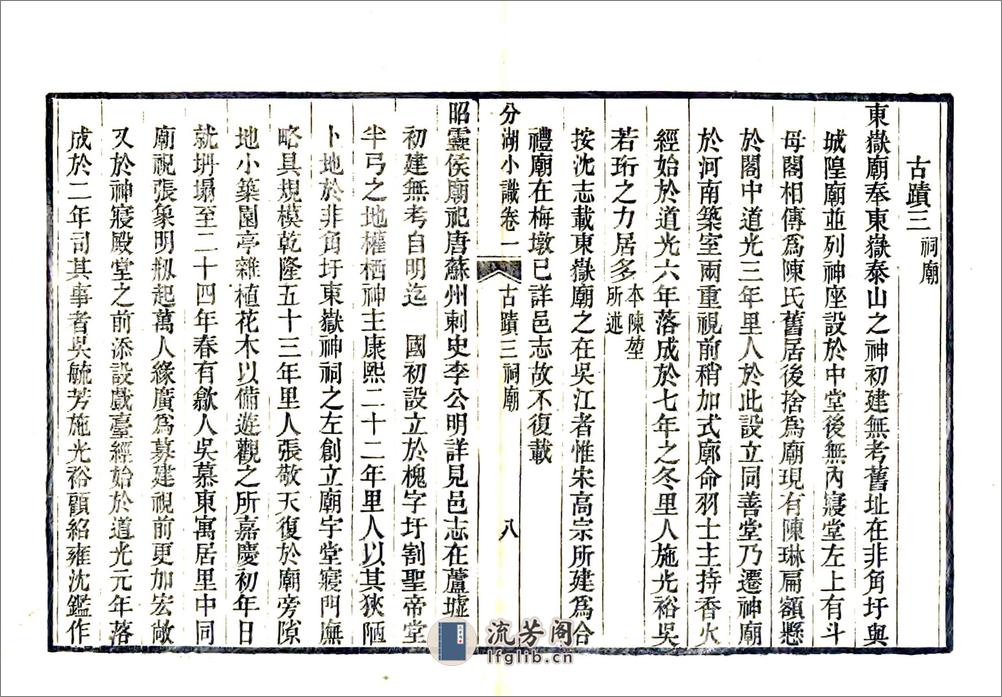 古蹟三祠廟
東嶽廟奉東嶽泰山之神初建無考舊址在非角圩與
城隍廟並列神座設於中堂後無內寢堂左上有斗
母閣相傳爲陳氏舊居後捨爲廟現有陳琳扁額懸
於閣中道光三年里人於此設立同善堂乃遷神廟
於河南築室兩重視前稍加式廓命羽士主持香火
經始於道光六年落成於七年之冬里人施光裕吳
若珩之力居多本陳堃所述
按沈志載東嶽廟之在吳江者惟宋高宗所建爲合
禮廟在梅墩已詳邑志故不復載
分湖小識卷一 古蹟三祠廟 八
昭靈侯廟祀唐蘇州刺史李公明詳見邑志在蘆墟
初建無考自明迄 國初設立於槐字圩割聖帝堂
半弓之地權栖神主康熙二十二年里人以其狹陋
卜地於非角圩東嶽神祠之左創立廟宇堂寢門廡
略具規模乾隆五十三年里人張敬天復於廟旁隙
地小築園亭雜植花木以備遊觀之所嘉慶初年日
就坍塌至二十四年春有歙人吳慕東寓居里中同
廟祝張象明剏起萬人緣廣爲募建視前更加宏敞
又於神寢殿堂之前添設戲臺經始於道光元年落
成於二年司其事者吳毓芳施光裕顧紹雍沈鑑作
流芳阁
lfglib.cn